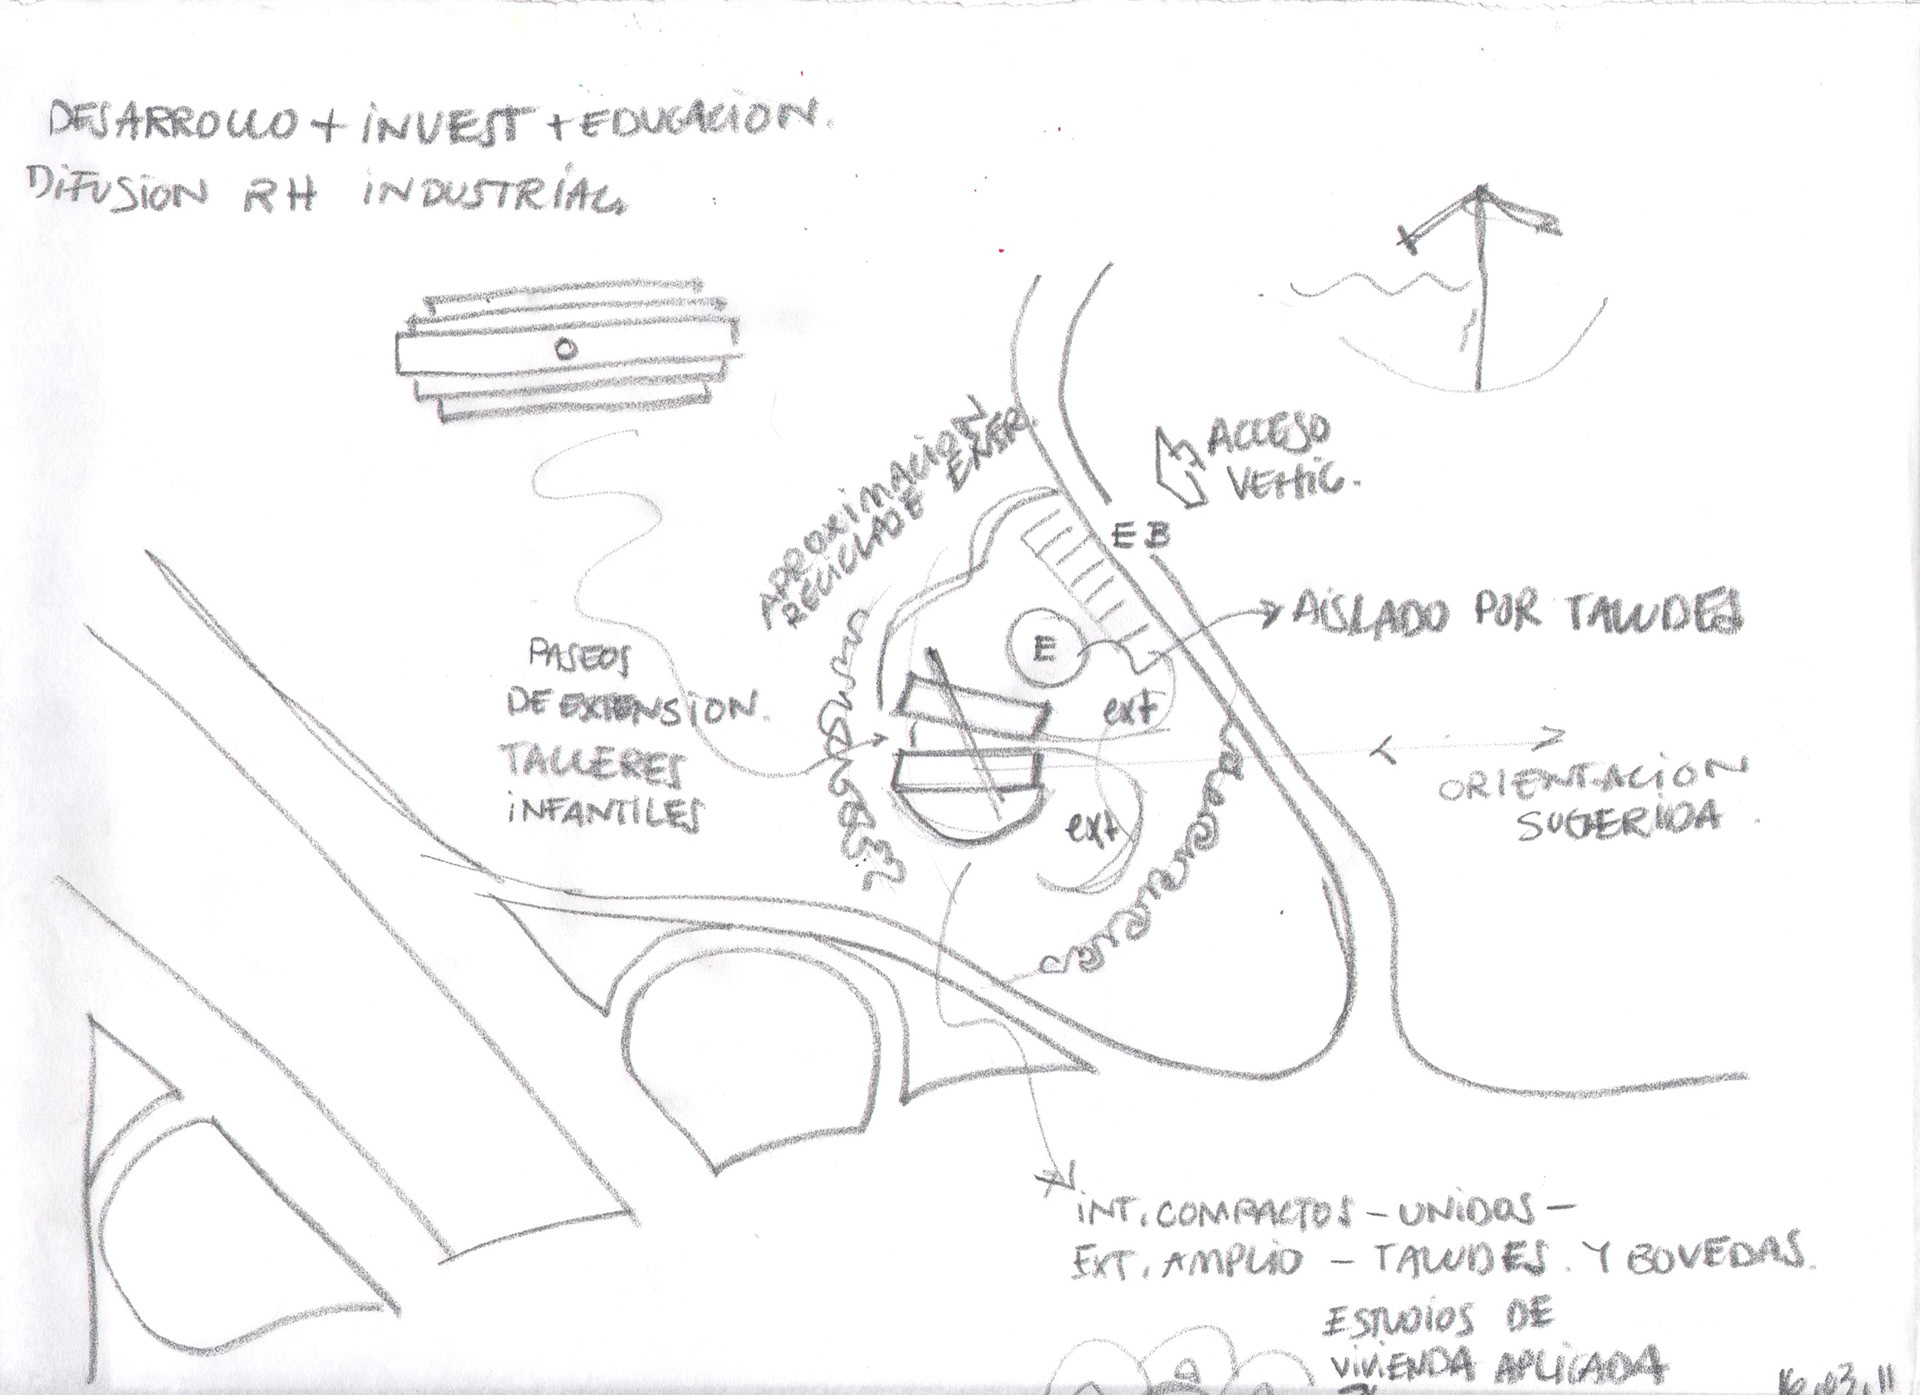 DESARROLLO + INVEST + EDUCACION.
DIFUSION RH INDUSTRIAL.
APROXIMACION
RECICLAJE ENER.
ACCESO
VEHIC.
EB
AISLADO POR TALUDES
E
ext
PASEOS
DE EXTENSION.
TALLERES
INFANTILES
ext
ORIENTACION
SUGERIDA.
INT. COMPACTOS - UNIDOS -
EXT. AMPLIO - TALUDES. Y BOVEDAS.
ESTUDIOS DE
VIVIENDA APLICADA
16.03.11